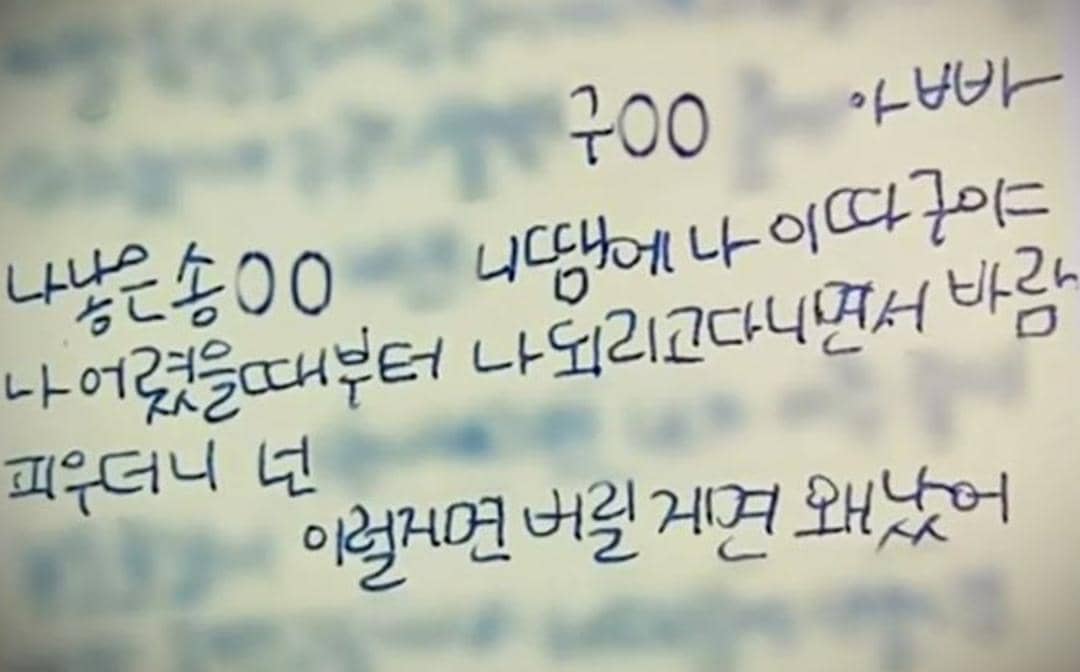 구OO 아빠
나낳은송OO 니땜에나이따구야
나어렸을때부터 나뙤리고다니면서 바람
피우더니 넌
이럴지면버릴게면 왜낳어